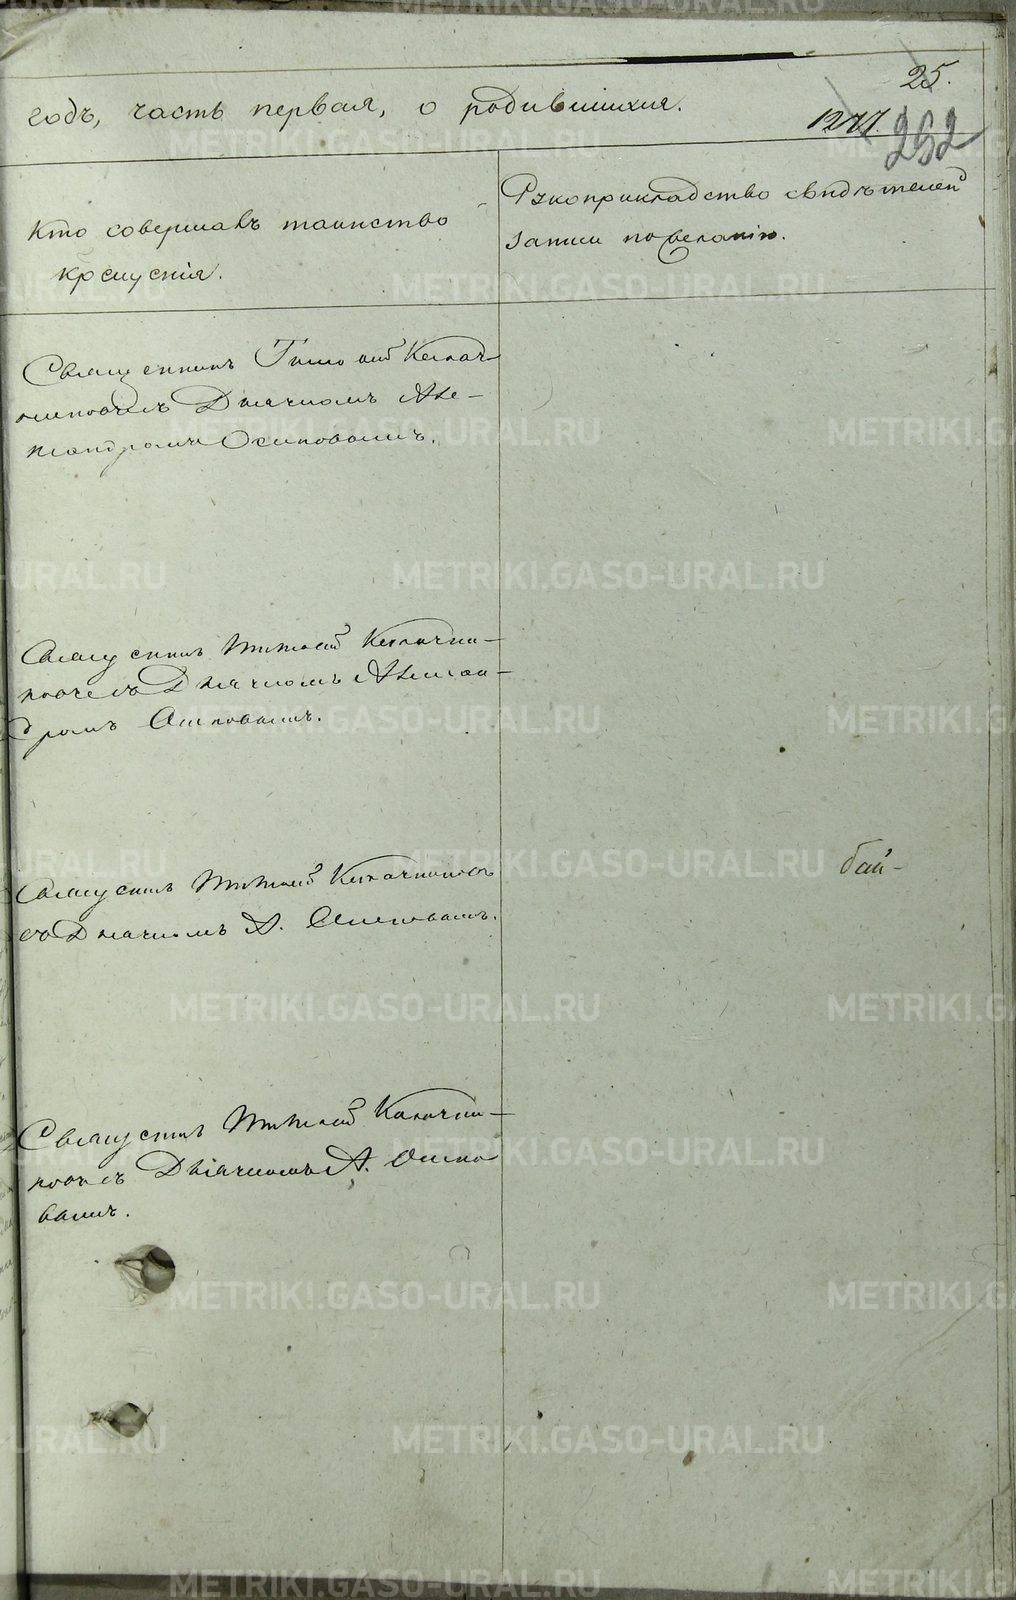 25.
годъ, часть первая, о родившихся.
1277. 252
Кто совершалъ таинство
крещенія.
Рукоприкладство свидѣтелей
записи по желанію.
Священникъ Тимофей Калач-
никовъ съ Дьячкомъ Але-
ксандромъ Осиповымъ.
Священникъ Тимофей Калачни-
ковъ съ Дьячкомъ Алексан-
дромъ Осиповымъ.
бай-
Священникъ Тимофей Калачниковъ
съ Дьячкомъ А. Осиповымъ.
Священникъ Тимофей Калачни-
ковъ съ Дьячкомъ А. Осипо
вымъ.
METRIKI.GASO-URAL.RU